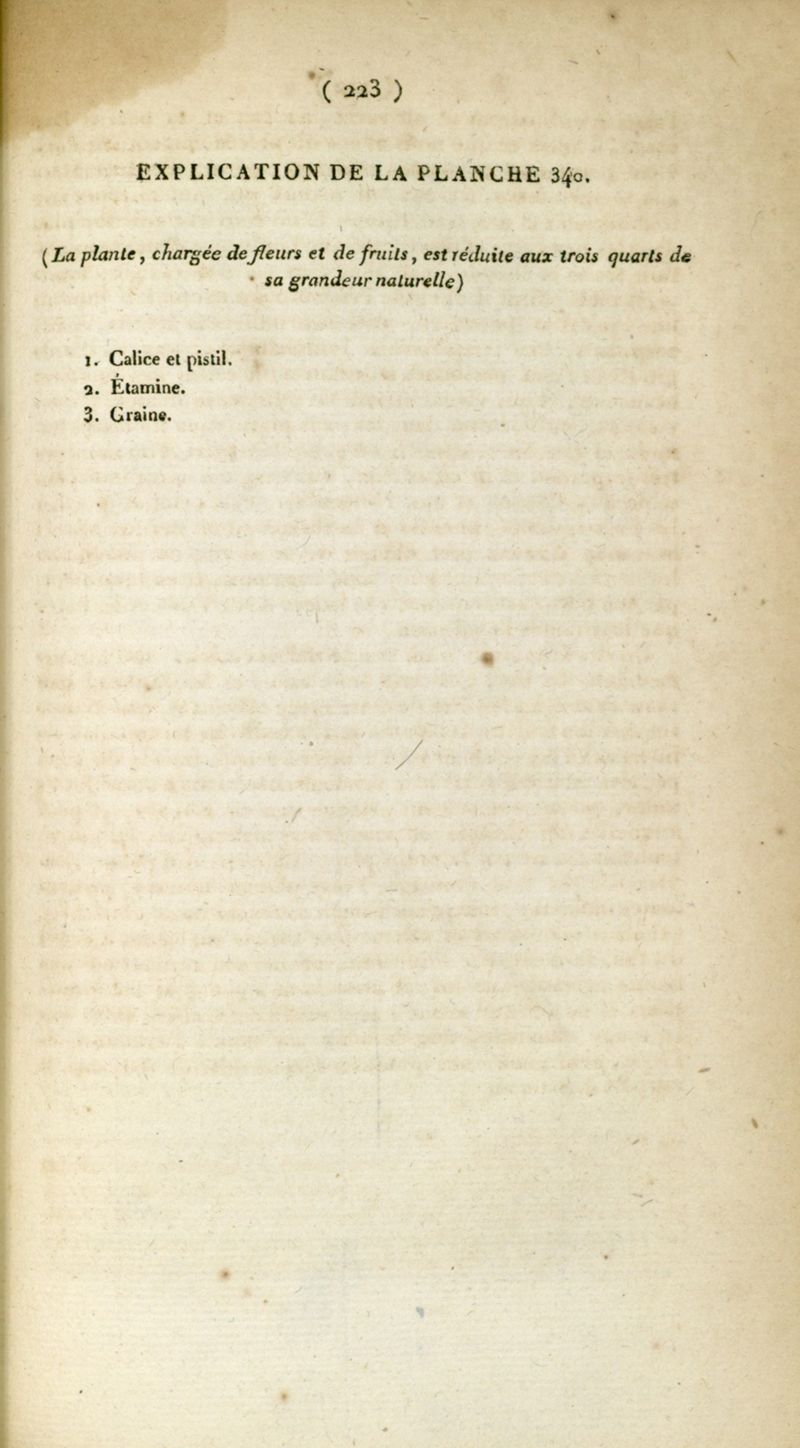 ( 223 )
EXPLICATION DE LA PLANCHE 340.
(La plante, chargée de fleurs et de fruits, est réduite aux trois quarts de
sa grandeur naturelle)
1. Calice et pistil.
2. Étamine.
3. Graine.